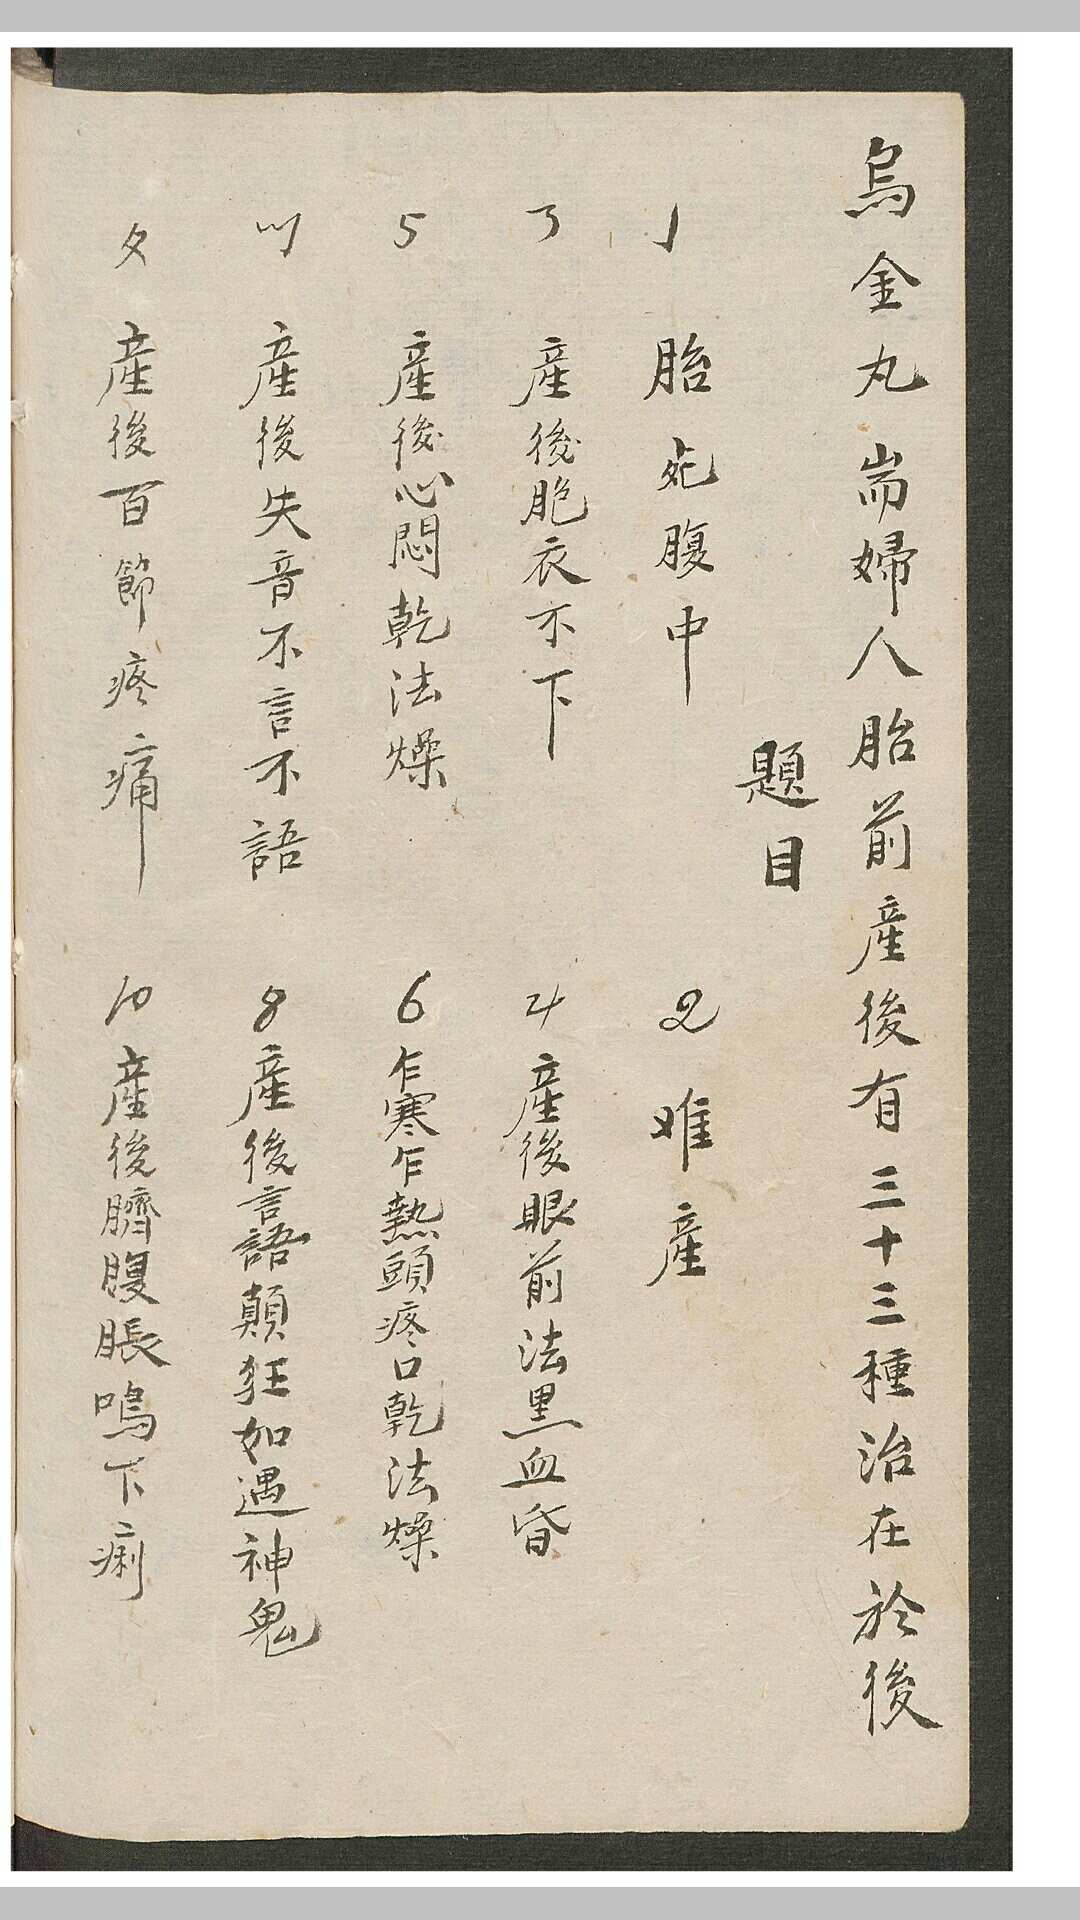 烏金丸耑婦人胎前產後有三十三種治在於後
題目
1 胎死腹中
2 难產
3 產後胞衣不下
4 產後眼前法黑血昏
5 產後心悶乾法燥
6 乍寒乍熱頭疼口乾法燥
7 產後失音不言不語
8 產後言語顛狂如遇神鬼
9 產後百節疼痛
10 產後臍腹脹鳴下痢